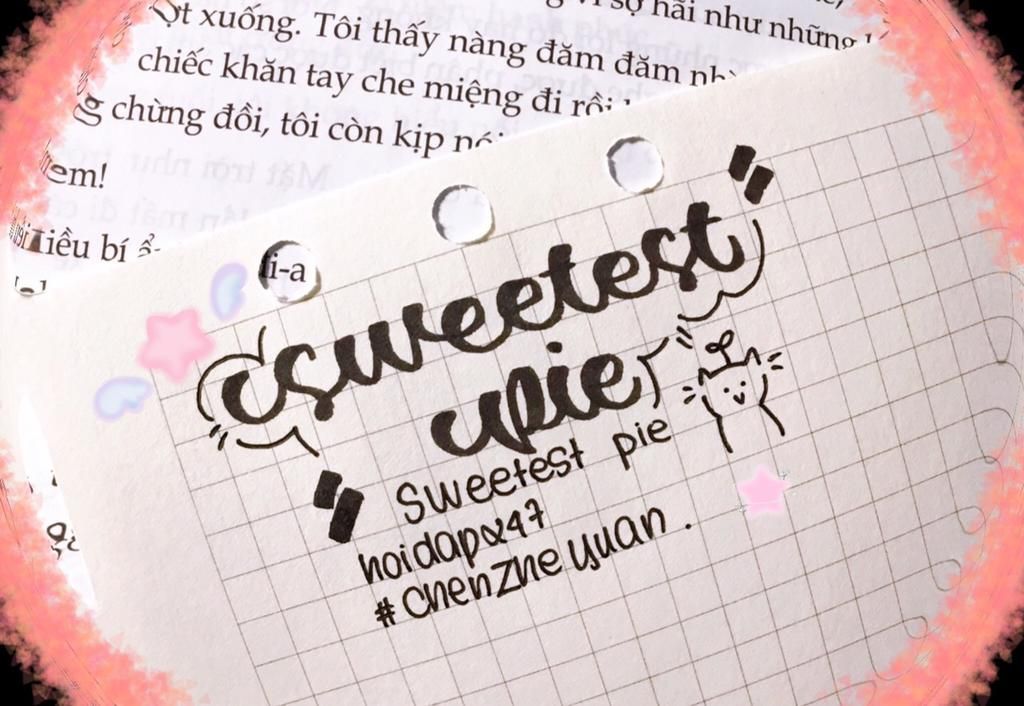 sợ hãi như những
xuống. Tôi thấy nàng đăm đăm
chiếc khăn tay che miệng đi rồi
chừng đồi, tôi còn kịp
em!
bí
li-a
sweetest
pie
Sweetest pie
hoidapα47
#chenzheyuan.